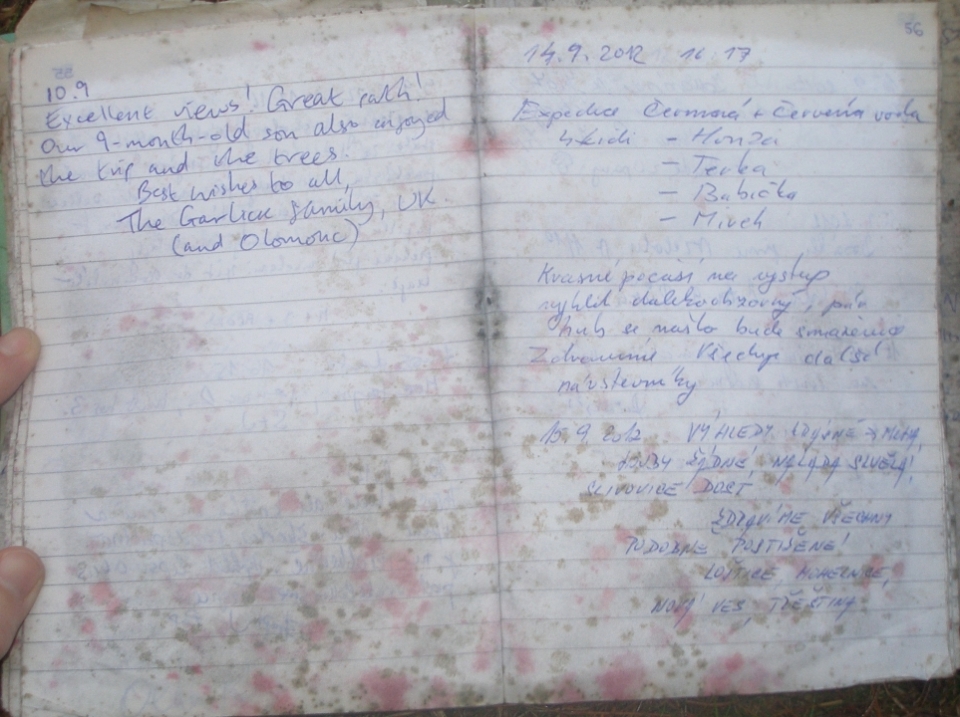 10.9
Excellent views! Great path!
Our 9-month-old son also enjoyed
the trip and the trees.
Best wishes to all,
The Garlick family, UK.
(and Olomouc)
56
14.9.2012 16 17
Expedice Čermná + Červená voda
- Honza
- Terka
- Babička
- Mirek
Krásné počasí na výstup
výhled dalekodizovný, pár
hub se našlo bude smaženice
Zdravíme všechny další
návštěvníky
15.9.2012 VÝHLEDY ŽÁDNÉ → MLHA,
HOUBY ŽÁDNÉ, NÁLADA SKVĚLÁ!
SLIVOVICE DOST
ZDRAVÍME VŠECHNY
PODOBNĚ POSTIŽENÉ!
LOŠTICE, MOHELNICE,
NOVÁ VES, TŘEŠTINA